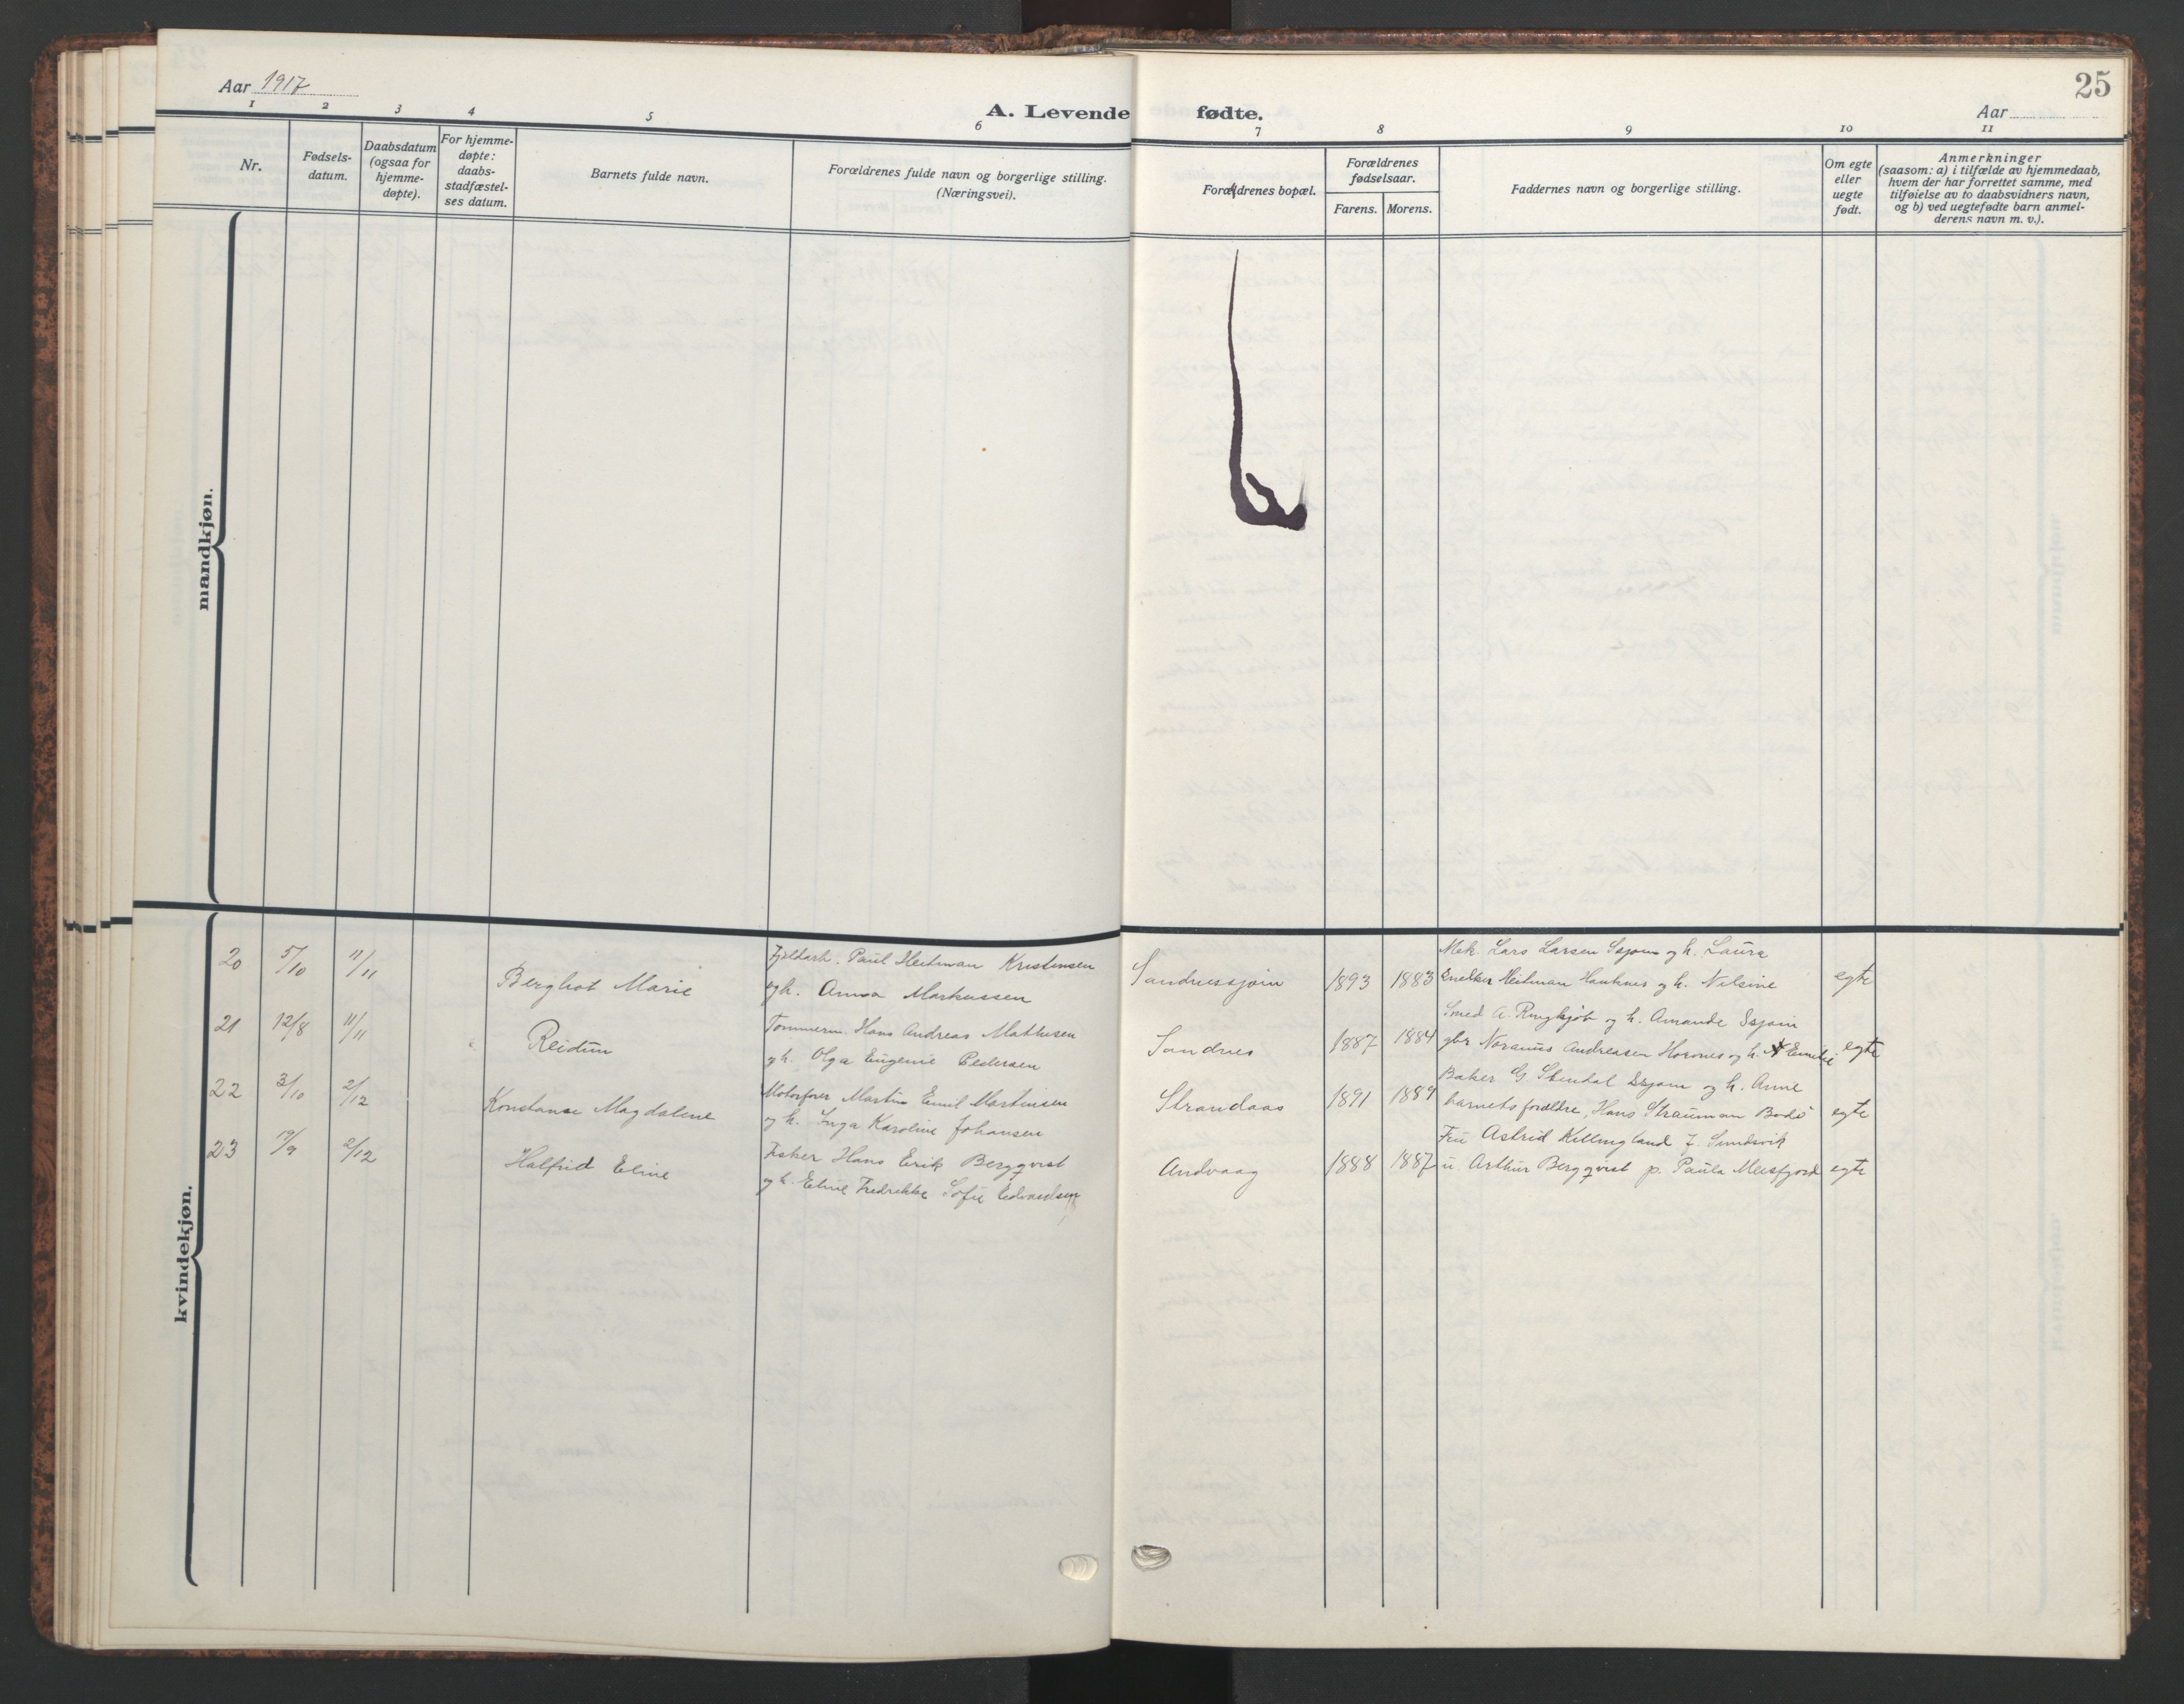 Aar 1917
A. Levende fødte.
25
Aar
1 2 3 4 5 6 7 8 9 10 11
Nr.
Fødsels-
datum.
Daabsdatum
(ogsaa for
hjemme-
døpte).
For hjemme-
døpte:
daabs-
stadfæstel-
ses datum.
Barnets fulde navn.
Forældrenes fulde navn og borgerlige stilling.
(Næringsvei).
Forældrenes bopæl.
Forældrenes
fødselsaar.
Farens. Morens.
Faddernes navn og borgerlige stilling.
Om egte
eller
uegte
født.
Anmerkninger
(saasom: a) i tilfælde av hjemmedaab,
hvem der har forrettet samme, med
tilføielse av to daabsvidners navn,
og b) ved uegtefødte barn anmel-
derens navn m. v.).
mandkjøn.
kvindekjøn.
20 5/10 11/11 Bergliot Marie
Fjeldarb. Paul Heitman Kristensen
og h. Anna Markussen
Sandnessjøen 1893 1883
Mek. Lars Larsen Ssjøen og h. Laura
Heitman Hauknes og h. Nelsine
egte
21 12/8 11/11 Reidun
Tømmerm. Hans Andreas Mathisen
og h. Olga Eugenie Pedersen
Sandnes 1887 1884
Smed A. Ringkjøb og h. Amanda Ssjøen
gbr Noranus Andreasen Horvnes og h. Emilie
egte
22 3/10 2/12 Konstanse Magdalene
Motorfører Martin Emil Martinsen
og h. Inga Karoline Johansen
Strandaas 1891 1889
Baker G. Stendal Ssjøen og h. Anne
barnets forældre, Hans Strauman Bodø
egte
23 19/9 2/12 Halfrid Eline
Fisker Hans Erik Bergqvist
og h. Eline Fredrekke Sofie Edvardsen
Andvaag 1888 1887
Fru Astrid Killingland f. Sundsvik
u. Arthur Bergqvist p. Paula Meesfjord
egte